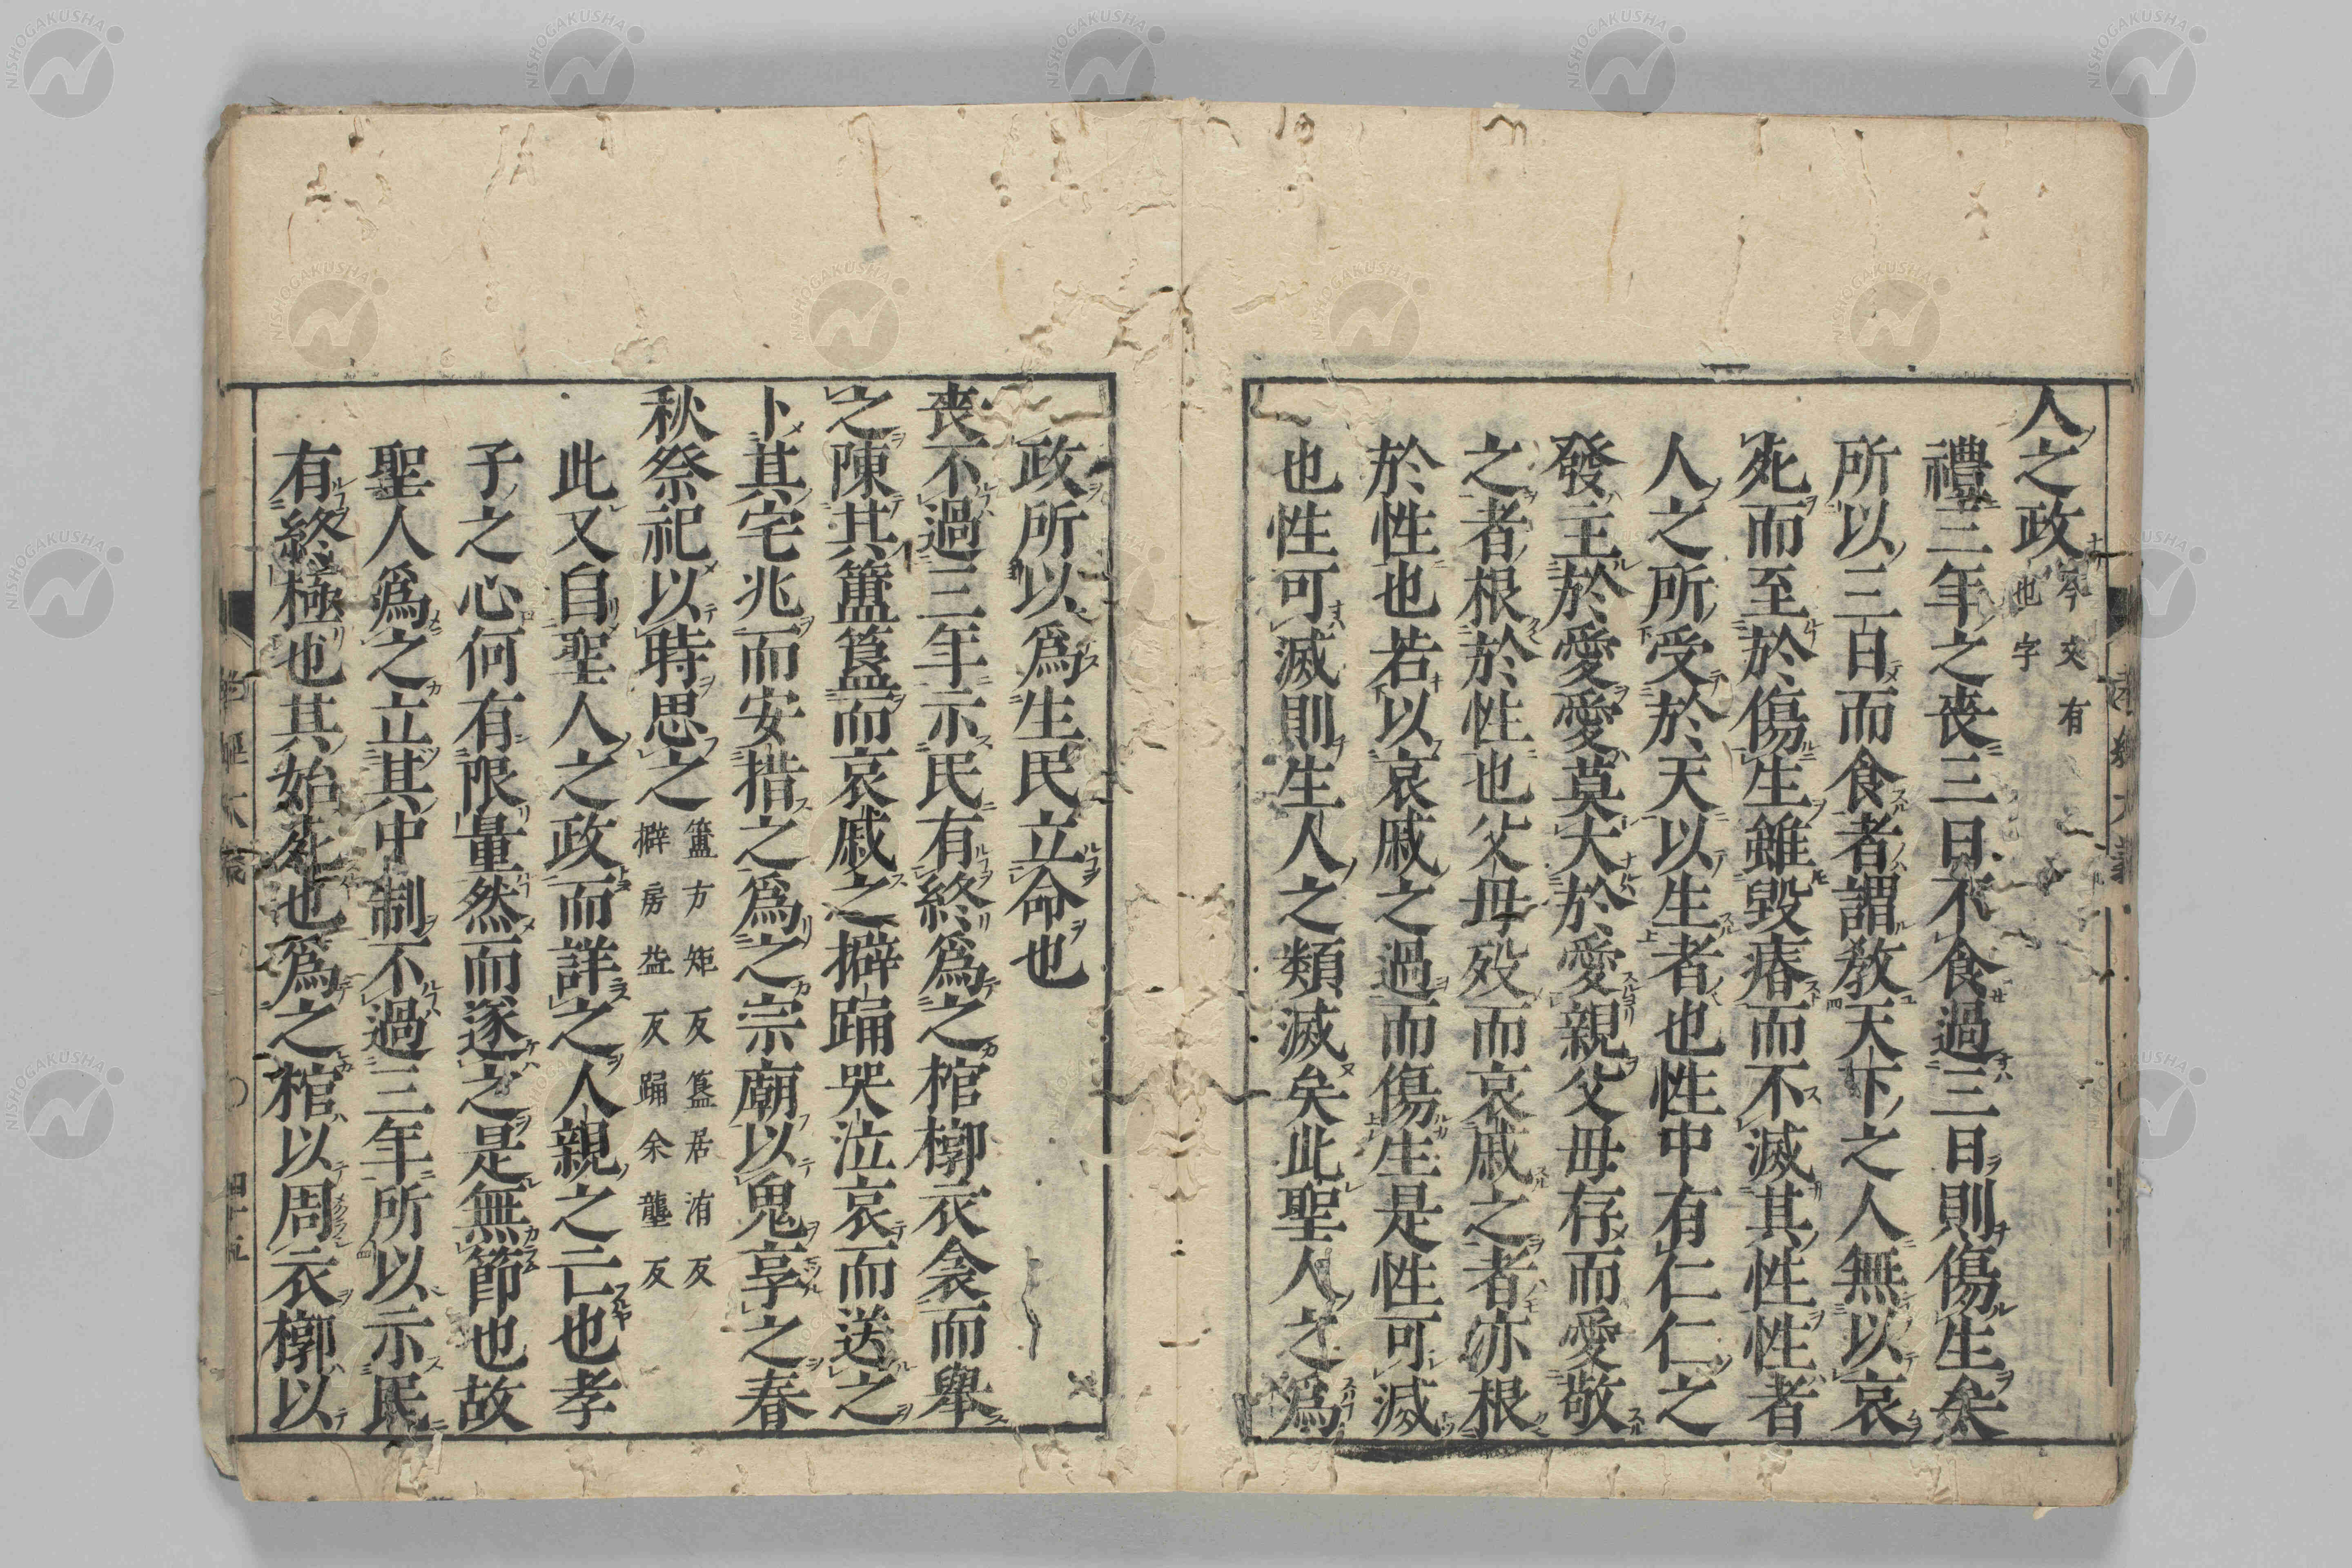 人之政今文有也字
禮三年之喪三日不食過三日則傷生矣
所以三日而食者謂教天下之人無以哀
死而至於傷生雖毀瘠而不滅其性性者
人之所受於天以生者也性中有仁仁之
發主於愛愛莫大於愛親父母存而愛敬
之者根於性也父母歿而哀戚之者亦根
於性也若以哀戚之過而傷生是性可滅
也性可滅則生人之類滅矣此聖人之爲
政所以爲生民立命也
喪不過三年示民有終爲之棺槨衣衾而舉
之陳其簠簋而哀戚之擗踊哭泣哀而送之
卜其宅兆而安措之爲之宗廟以鬼享之春
秋祭祀以時思之簠方矩反簋居洧反擗房益反踊余壟反
此又自聖人之政而詳之人親之亡也孝
子之心何有限量然而遂之是無節也故
聖人爲之立其中制不過三年所以示民
有終極也其始死也爲之棺以周衣槨以
NISHOGAKUSHA